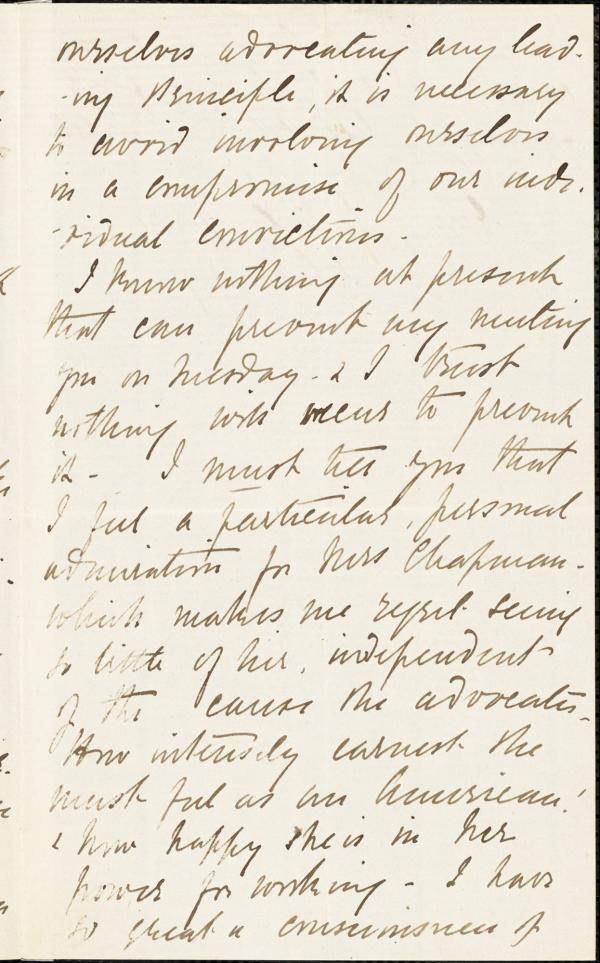 ourselves advocating any lead-
-ing Principle, it is necessary
to avoid involving ourselves
in a compromise of our indi-
-vidual convictions.
I know nothing at present
that can prevent my meeting
you on Tuesday - & I trust
nothing will occur to prevent
it - I must tell you that
I feel a particular, personal
admiration for Mrs Chapman -
which makes me regret seeing
so little of her, independent
of the cause she advocates.
How intensely earnest she
must feel as an American!
& how happy she is in her
power for working - I have
so great a consciousness of